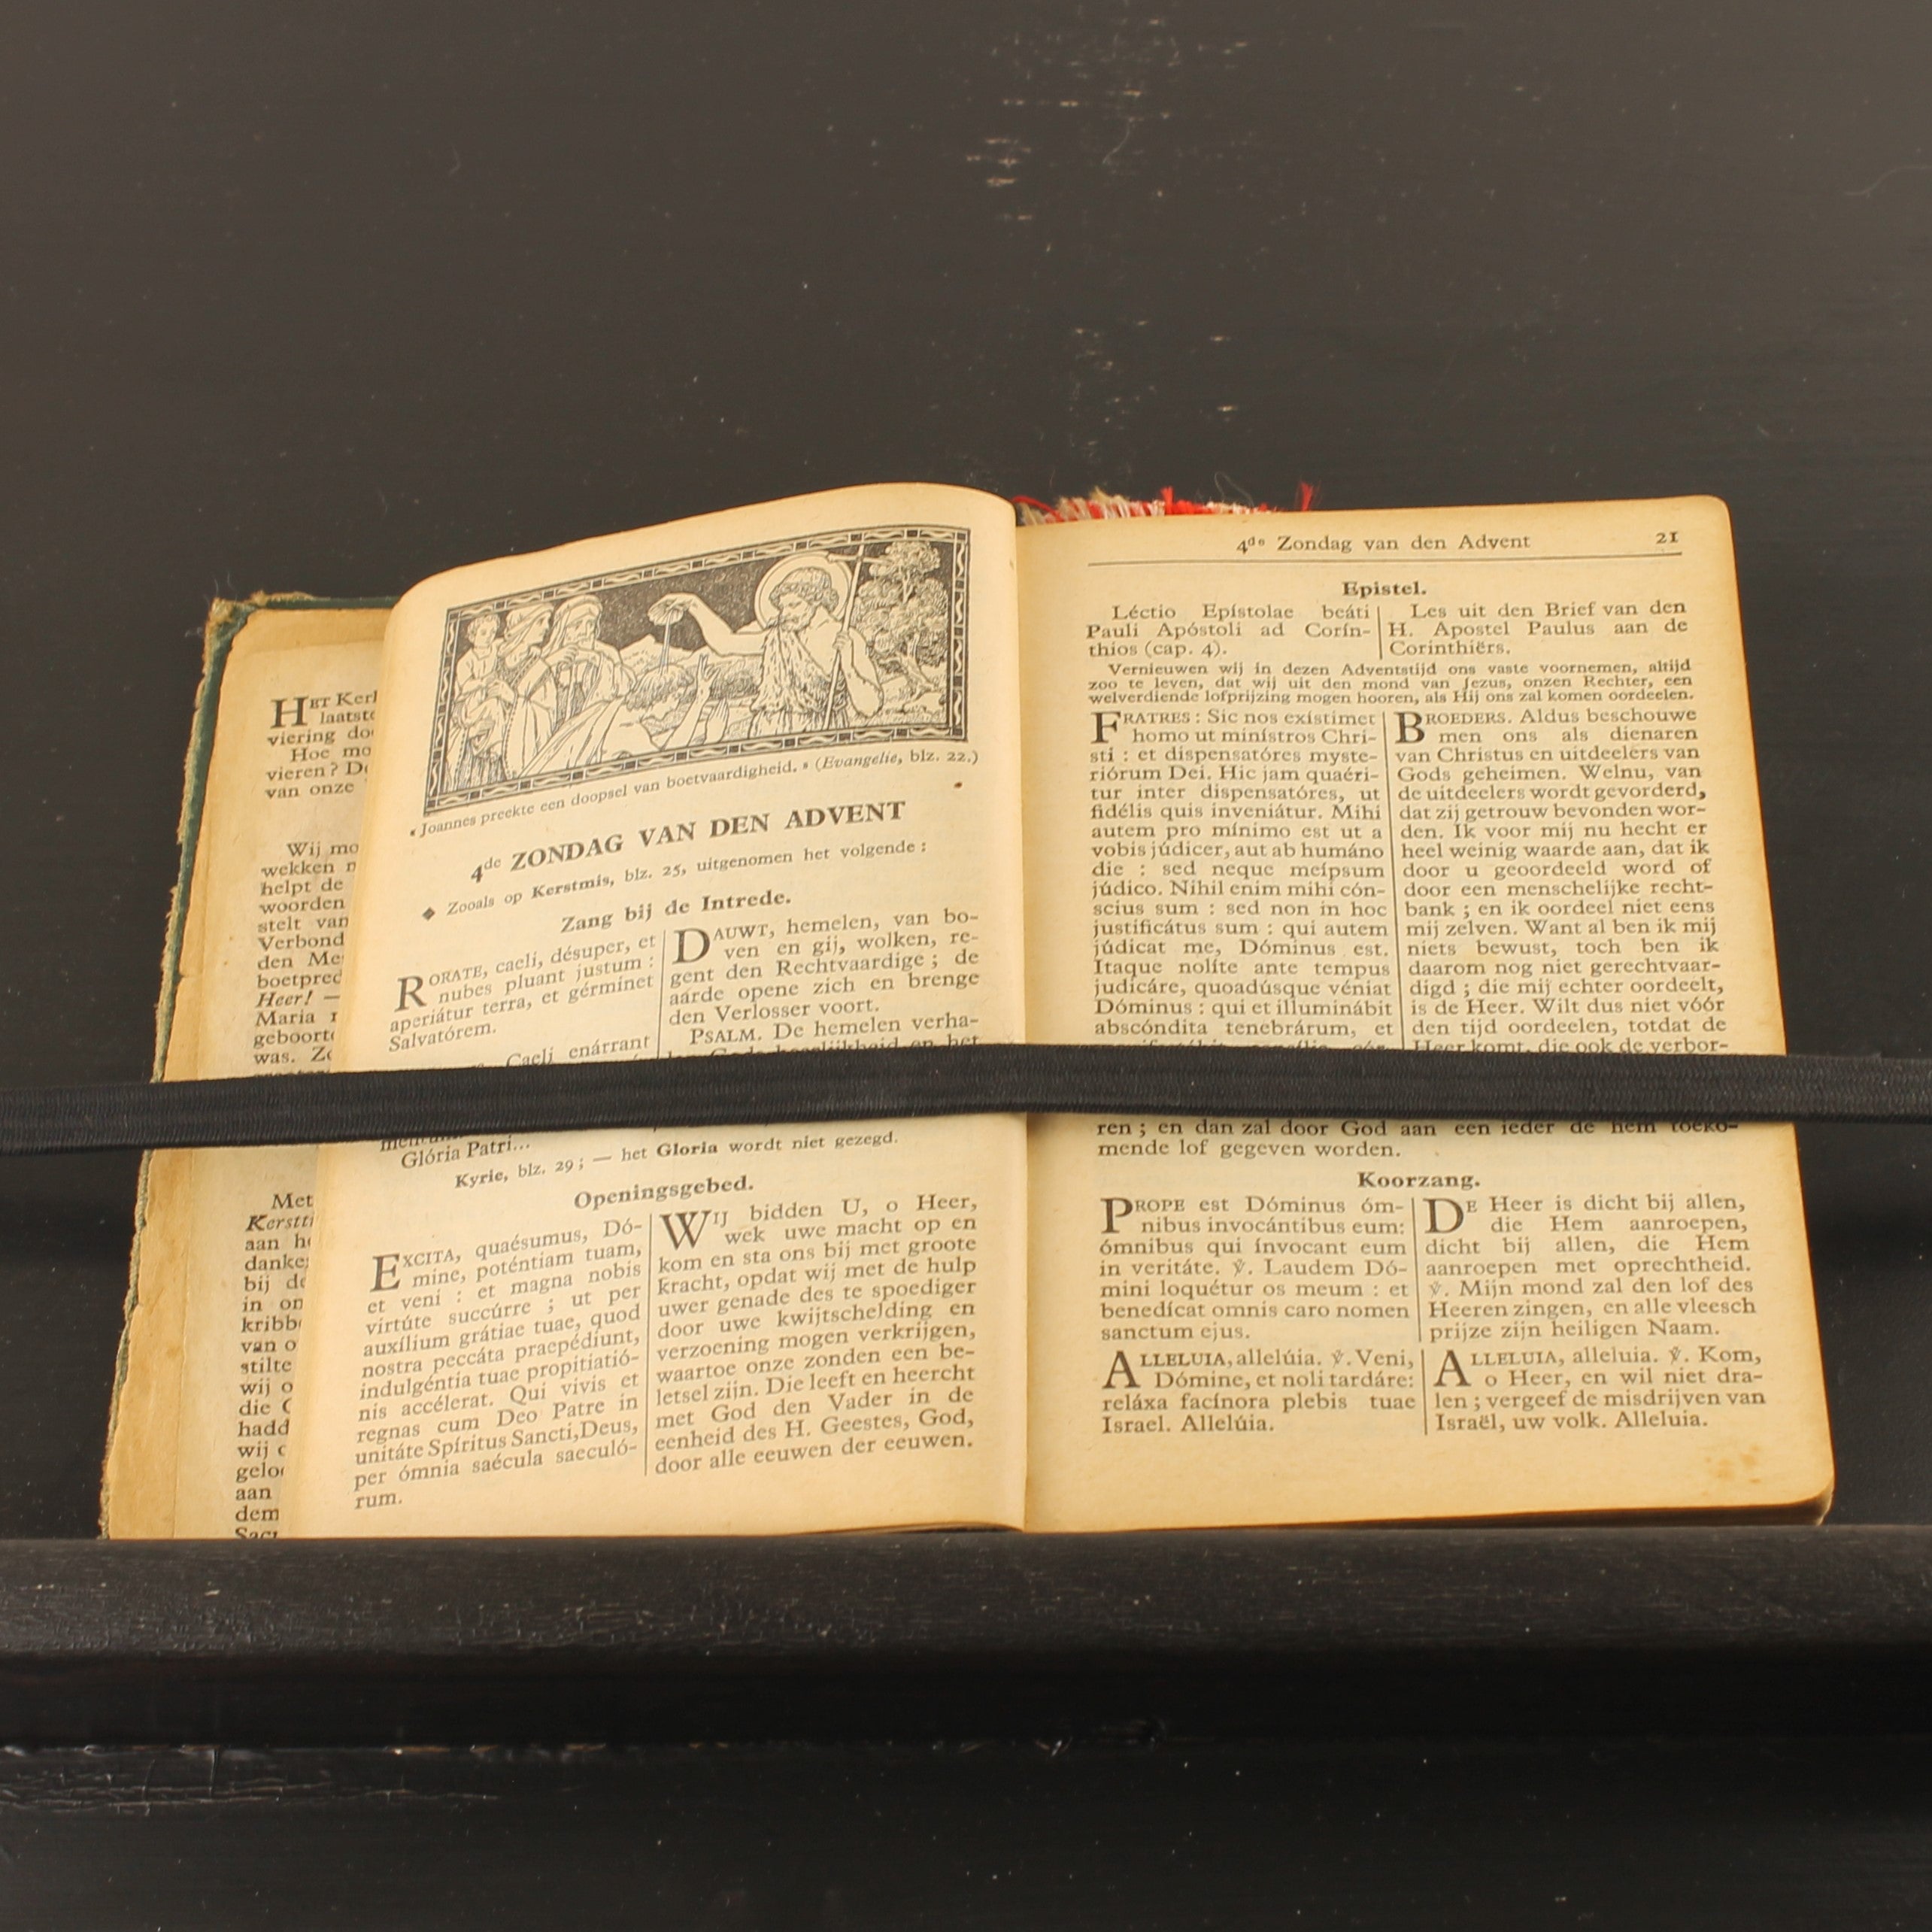 HET Kerk
laatste
viering do
Hoe mo
vieren? De
van onze
Wij mo
wekken
helpt de
woorden
stelt van
Verbond
den Me
boetpred
Heer! —
Maria
geboorte
was.
Met
Kerstti
aan
danke
bij de
in on
kribb
van o
stilte
wij o
die
hadd
wij
gelo
aan
dem
« Joannes preekte een doopsel van boetvaardigheid. » (Evangelie, blz. 22.)
4de ZONDAG VAN DEN ADVENT
◆ Zooals op Kerstmis, blz. 25, uitgenomen het volgende :
Zang bij de Intrede.
RORATE, caeli, désuper, et
nubes pluant justum :
aperiátur terra, et gérminet
Salvatórem.
Caeli enárrant
Glória Patri...
DAUWT, hemelen, van bo-
ven en gij, wolken, re-
gent den Rechtvaardige ; de
aarde opene zich en brenge
den Verlosser voort.
PSALM. De hemelen verha-
Gods heerlijkheid en het
Kyrie, blz. 29 ; — het Gloria wordt niet gezegd.
Openingsgebed.
EXCITA, quaésumus, Dó-
mine, poténtiam tuam,
et veni : et magna nobis
virtúte succúrre ; ut per
auxílium grátiae tuae, quod
nostra peccáta praepédiunt,
indulgéntia tuae propitiatió-
nis accélerat. Qui vivis et
regnas cum Deo Patre in
unitáte Spíritus Sancti, Deus,
per ómnia saécula saeculó-
rum.
WIJ bidden U, o Heer,
wek uwe macht op en
kom en sta ons bij met groote
kracht, opdat wij met de hulp
uwer genade des te spoediger
door uwe kwijtschelding en
verzoening mogen verkrijgen,
waartoe onze zonden een be-
letsel zijn. Die leeft en heercht
met God den Vader in de
eenheid des H. Geestes, God,
door alle eeuwen der eeuwen.
4de Zondag van den Advent 21
Epistel.
Léctio Epístolae beáti
Pauli Apóstoli ad Corín-
thios (cap. 4).
Les uit den Brief van den
H. Apostel Paulus aan de
Corinthiërs.
Vernieuwen wij in dezen Adventstijd ons vaste voornemen, altijd
zoo te leven, dat wij uit den mond van Jezus, onzen Rechter, een
welverdiende lofprijzing mogen hooren, als Hij ons zal komen oordeelen.
FRATRES : Sic nos exístimet
homo ut minístros Chri-
sti : et dispensatóres myste-
riórum Dei. Hic jam quaéri-
tur inter dispensatóres, ut
fidélis quis inveniátur. Mihi
autem pro mínimo est ut a
vobis júdicer, aut ab humáno
die : sed neque meípsum
júdico. Nihil enim mihi cón-
scius sum : sed non in hoc
justificátus sum : qui autem
júdicat me, Dóminus est.
Itaque nolíte ante tempus
judicáre, quoadúsque véniat
Dóminus : qui et illuminábit
abscóndita tenebrárum, et
BROEDERS. Aldus beschouwe
men ons als dienaren
van Christus en uitdeelers van
Gods geheimen. Welnu, van
de uitdeelers wordt gevorderd,
dat zij getrouw bevonden wor-
den. Ik voor mij nu hecht er
heel weinig waarde aan, dat ik
door u geoordeeld word of
door een menschelijke recht-
bank ; en ik oordeel niet eens
mij zelven. Want al ben ik mij
niets bewust, toch ben ik
daarom nog niet gerechtvaar-
digd ; die mij echter oordeelt,
is de Heer. Wilt dus niet vóór
den tijd oordeelen, totdat de
Heer komt, die ook de verbor-
ren ; en dan zal door God aan een ieder de hem toeko-
mende lof gegeven worden.
Koorzang.
PROPE est Dóminus óm-
nibus invocántibus eum:
ómnibus qui ínvocant eum
in veritáte. ℣. Laudem Dó-
mini loquétur os meum : et
benedícat omnis caro nomen
sanctum ejus.
DE Heer is dicht bij allen,
die Hem aanroepen,
dicht bij allen, die Hem
aanroepen met oprechtheid.
℣. Mijn mond zal den lof des
Heeren zingen, en alle vleesch
prijze zijn heiligen Naam.
ALLELUIA, allelúia. ℣. Veni,
Dómine, et noli tardáre:
reláxa facínora plebis tuae
Israel. Allelúia.
ALLELUIA, alleluia. ℣. Kom,
o Heer, en wil niet dra-
len ; vergeef de misdrijven van
Israël, uw volk. Alleluia.